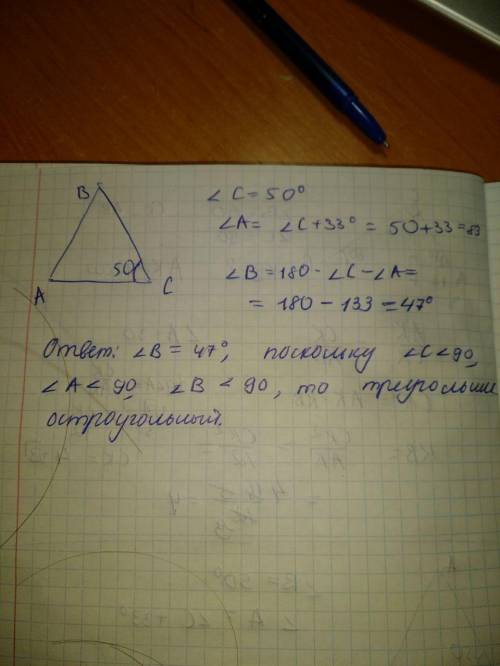 B
50
A
C
∠C=50°
∠A= ∠C+33° = 50+33=83
∠B=180-∠C-∠A=
= 180-133=47°
Ответ: ∠B = 47°, поскольку ∠C<90,
∠A<90, ∠B < 90, то треугольник
остроугольный.